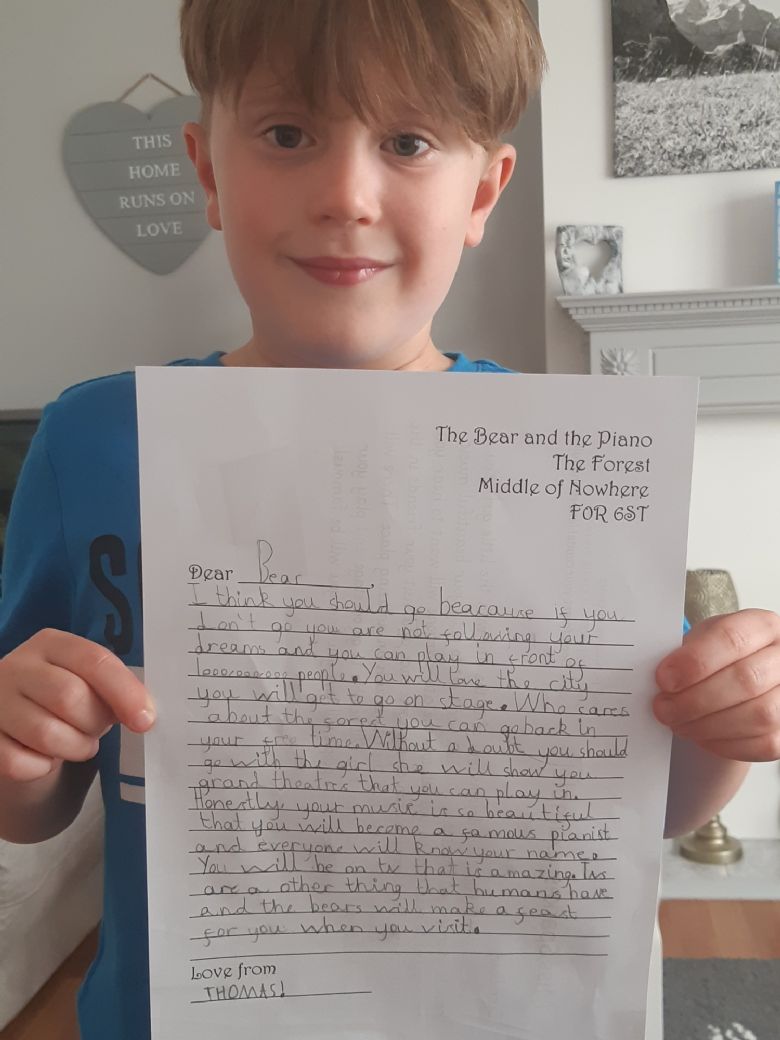 THIS
HOME
RUNS ON
LOVE
The Bear and the Piano
The Forest
Middle of Nowhere
FOR 6ST
Dear Bear,
I think you should go beacause if you
don't go you are not following your
dreams and you can play in front of
people. You will love the city
you will get to go on stage. Who cares
about the forest you can go back in
your free time. Without a doubt you should
go with the girl she will show you
grand theatres that you can play in.
Honestly your music is so beautiful
that you will become a famous pianist
and everyone will know your name.
You will be on tv that is amazing. Tvs
are a other thing that humans have
and the bears will make a feast
for you when you visit.
Love from
THOMAS!